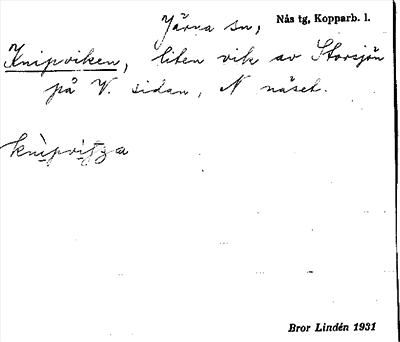 Järna sn, Nås tg, Kopparb. l.
Knipviken, liten vik av Storsjön
på V. sidan, N näset.
Bror Lindén 1931